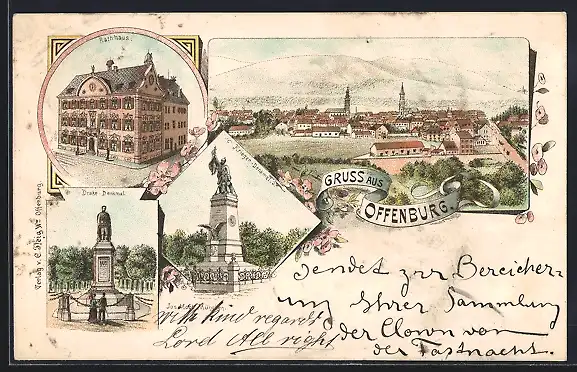 Rathhaus.
Drake Denkmal
GRUSS AUS
OFFENBURG.
Verlag v. C. Neig Wwe Offenburg.
sendet zur Bereicher-
ung Ihrer Sammlung
der Clown von
der Fastnacht.
with kind regards
Lord All right